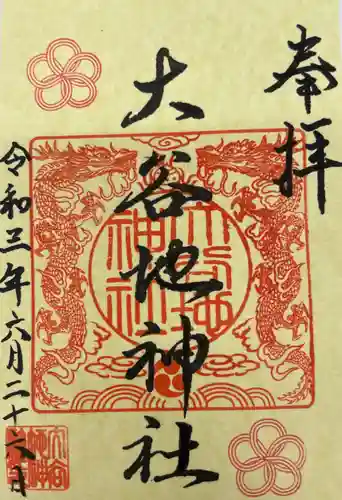 奉拝
大谷地神社
令和三年六月二十六日
大谷地神社